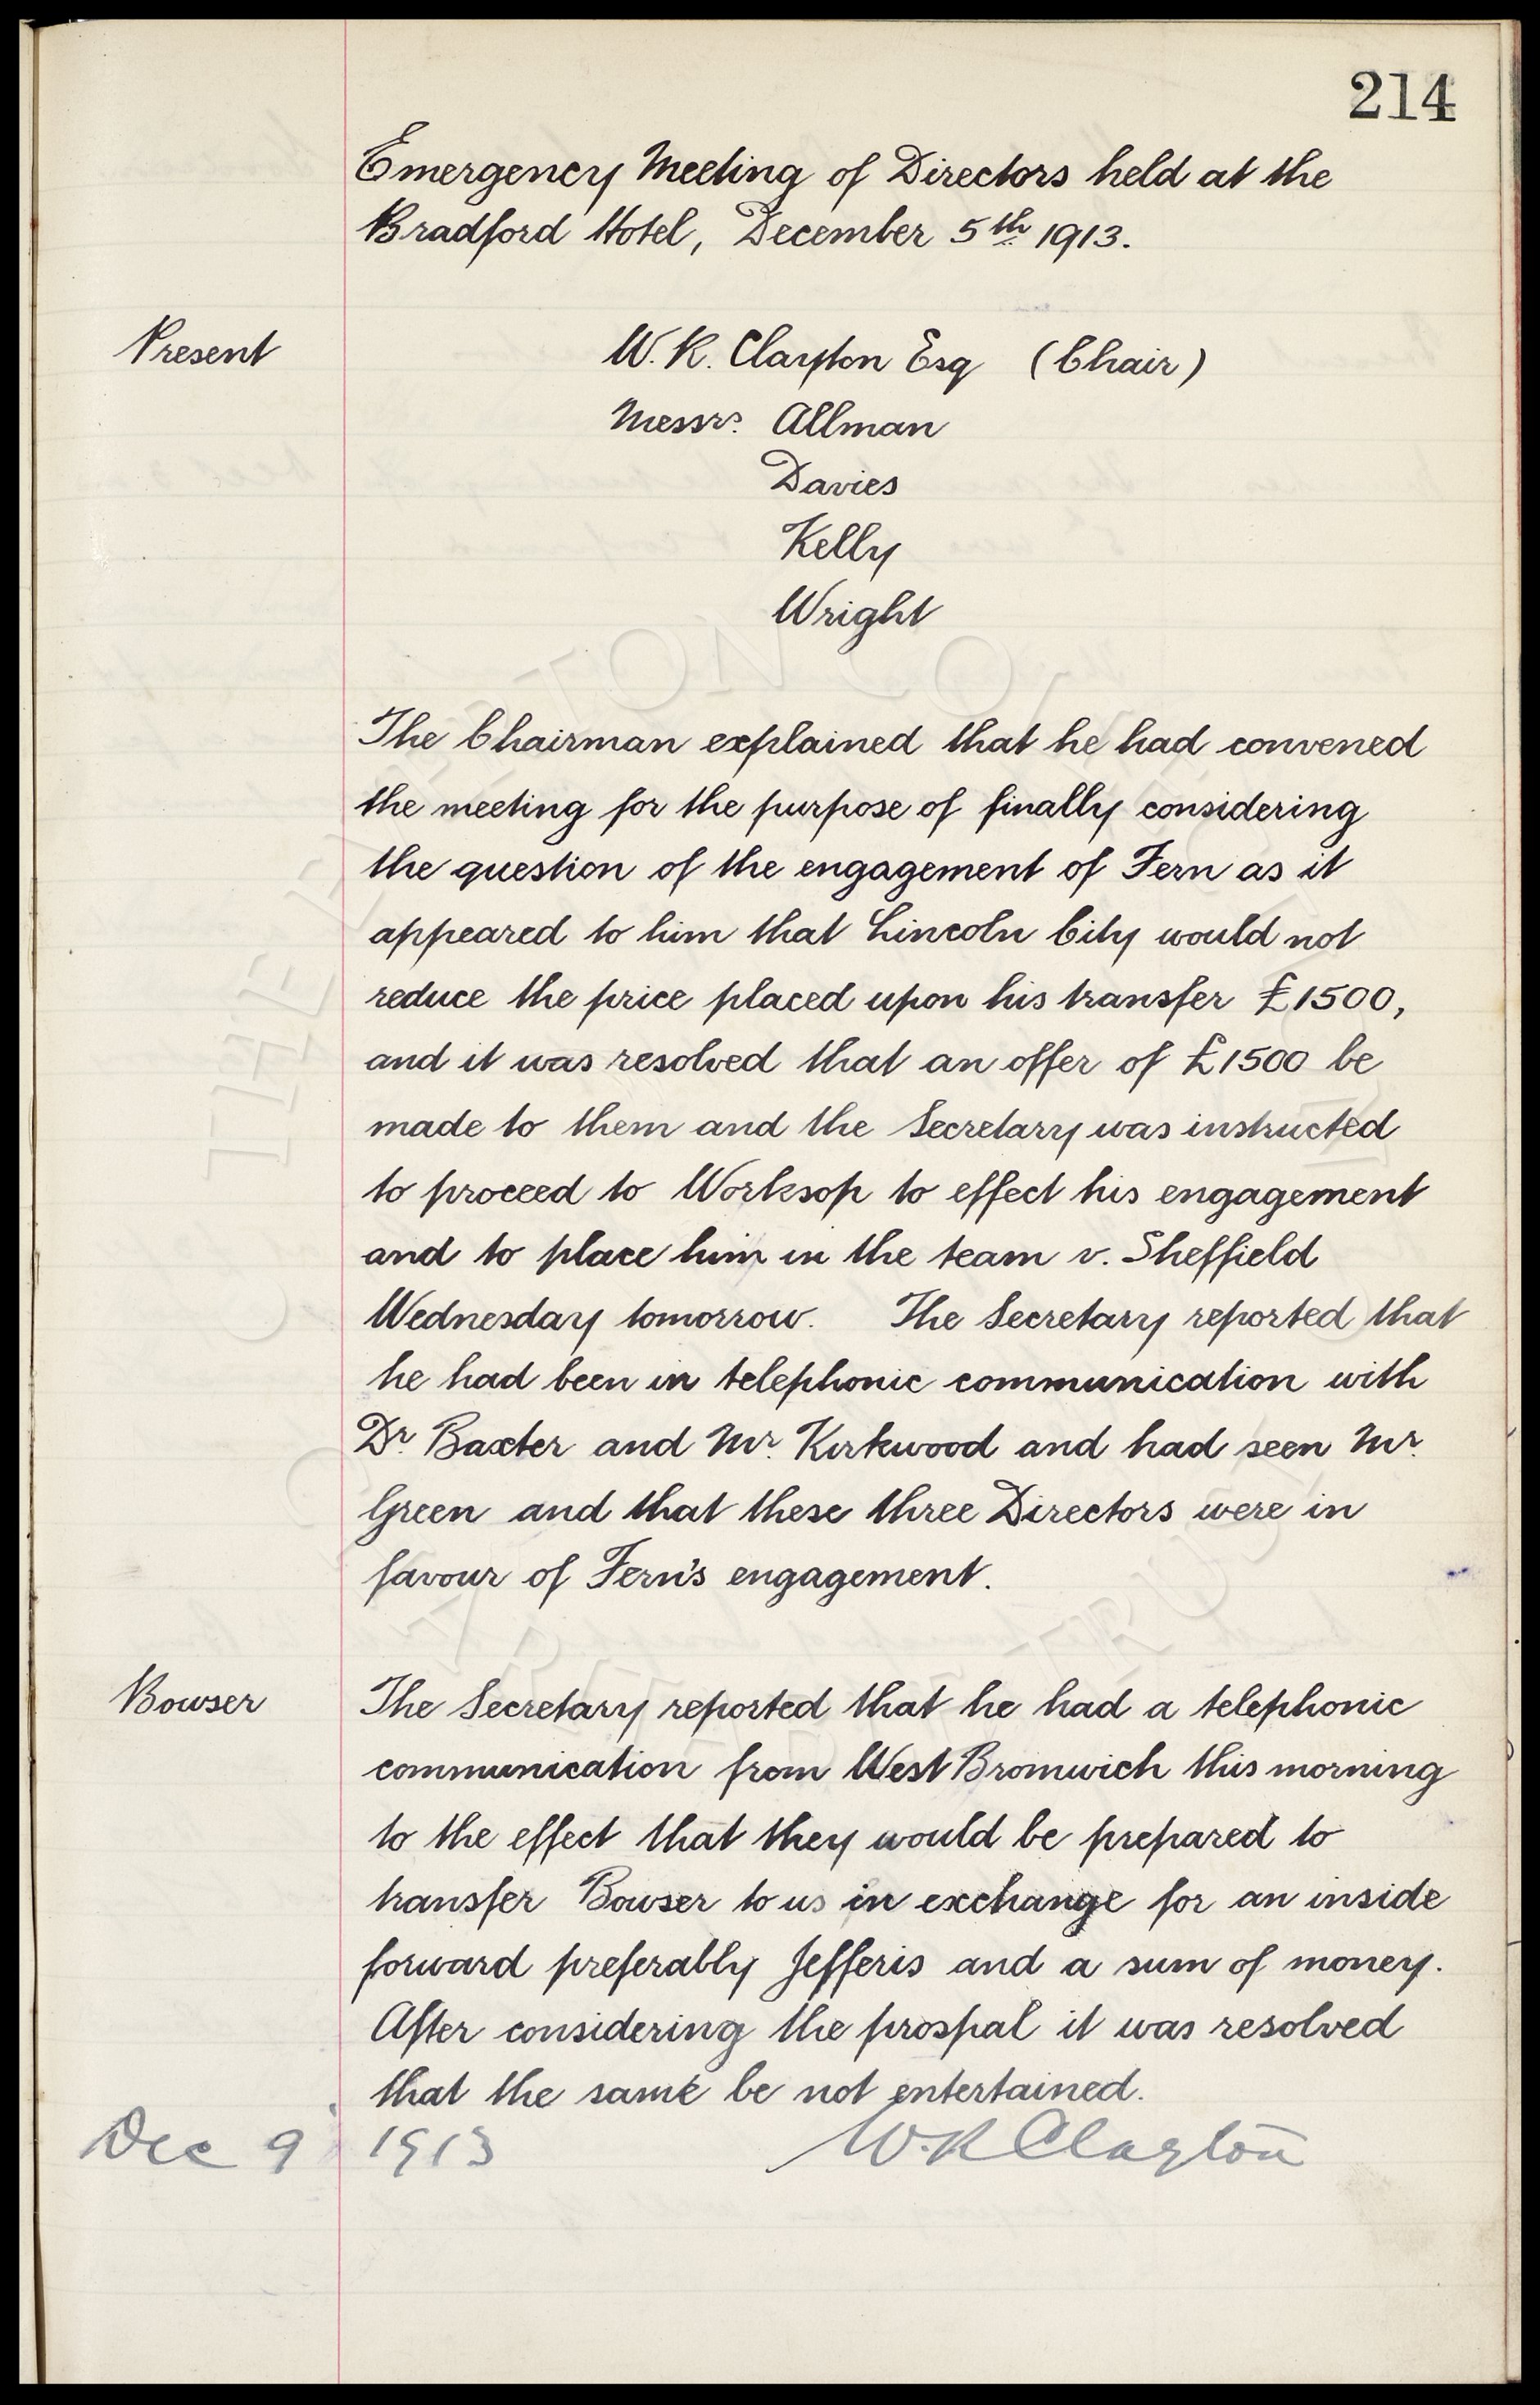 214
Emergency Meeting of Directors held at the
Bradford Hotel, December 5th 1913.
Present
W. R. Clayton Esq (Chair)
Messrs. Allman
Davies
Kelly
Wright
The Chairman explained that he had convened
the meeting for the purpose of finally considering
the question of the engagement of Fern as it
appeared to him that Lincoln City would not
reduce the price placed upon his transfer £1500,
and it was resolved that an offer of £1500 be
made to them and the Secretary was instructed
to proceed to Worksop to effect his engagement
and to place him in the team v. Sheffield
Wednesday tomorrow. The Secretary reported that
he had been in telephonic communication with
Dr. Baxter and Mr. Kirkwood and had seen Mr.
Green and that these three Directors were in
favour of Fern's engagement.
Bowser The Secretary reported that he had a telephonic
communication from West Bromwich this morning
to the effect that they would be prepared to
transfer Bowser to us in exchange for an inside
forward preferably Jefferis and a sum of money.
After considering the prospal it was resolved
that the same be not entertained.
Dec 9 1913 W. R Clayton